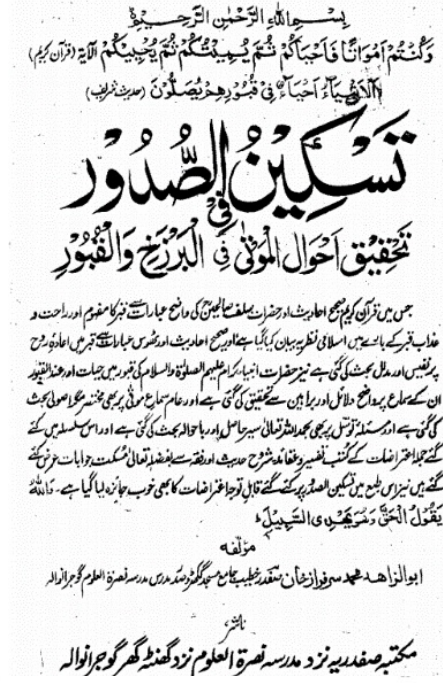 بسم اللہ الرحمٰن الرحیم
وَكُنْتُمْ اَمْوَاتًا فَاَحْيَاكُمْ ثُمَّ يُمِيْتُكُمْ ثُمَّ يُحْيِيْكُمْ الآیۃ (قرآن کریم)
اَلْاَنْبِيَاءُ اَحْيَاءٌ فِيْ قُبُوْرِهِمْ يُصَلُّوْنَ (حدیث شریف)
تَسْکِیْنُ الصُّدُوْر
فی
تَحْقِیْقِ اَحْوَالِ الْمَوْتٰی فِی الْبَرْزَخِ وَالْقُبُوْرِ
جس میں قرآن کریم صحیح احادیث اور حضرات سلف صالحین کی واضح عبارات سے قبر کا مفہوم اور راحت و
عذاب قبر کے بارے میں اسلامی نظریہ بیان کیا گیا ہے اور صحیح احادیث اور ٹھوس عبارات سے قبر میں اعادہ روح
پر نفیس اور مدلل بحث کی گئی ہے نیز حضرات انبیاء کرام علیہم الصلوٰۃ والسلام کی قبور میں حیات اور عند القبور
ان کے سماع پر واضح دلائل اور براہین سے تحقیق کی گئی ہے اور عام سماع موتیٰ پر بھی مختصر مگر اصولی بحث
کی گئی ہے اور مسئلہ توسل پر بھی بحمد اللہ تعالیٰ سیر حاصل اور باحوالہ بحث کی گئی ہے اور اس سلسلہ میں کئے
گئے جملہ اعتراضات کے کتب تفسیر و عقائد شروح حدیث اور فقہ سے بفضلہ تعالیٰ مسکت جوابات عرض کئے
گئے ہیں نیز اس طبع میں تسکین الصدور پر کئے گئے قابل توجہ اعتراضات کا بھی خوب جائزہ لیا گیا ہے۔ وَاللّٰهُ
يَقُوْلُ الْحَقَّ وَهُوَ يَهْدِى السَّبِيْلَ
مؤلفہ
ابو الزاہد محمد سرفراز خان صفدر خطیب جامع مسجد گکھڑ و صدر مدرس مدرسہ نصرۃ العلوم گوجرانوالہ
ناشر
مکتبہ صفدریہ نزد مدرسہ نصرۃ العلوم نزد گھنٹہ گھر گوجرانوالہ